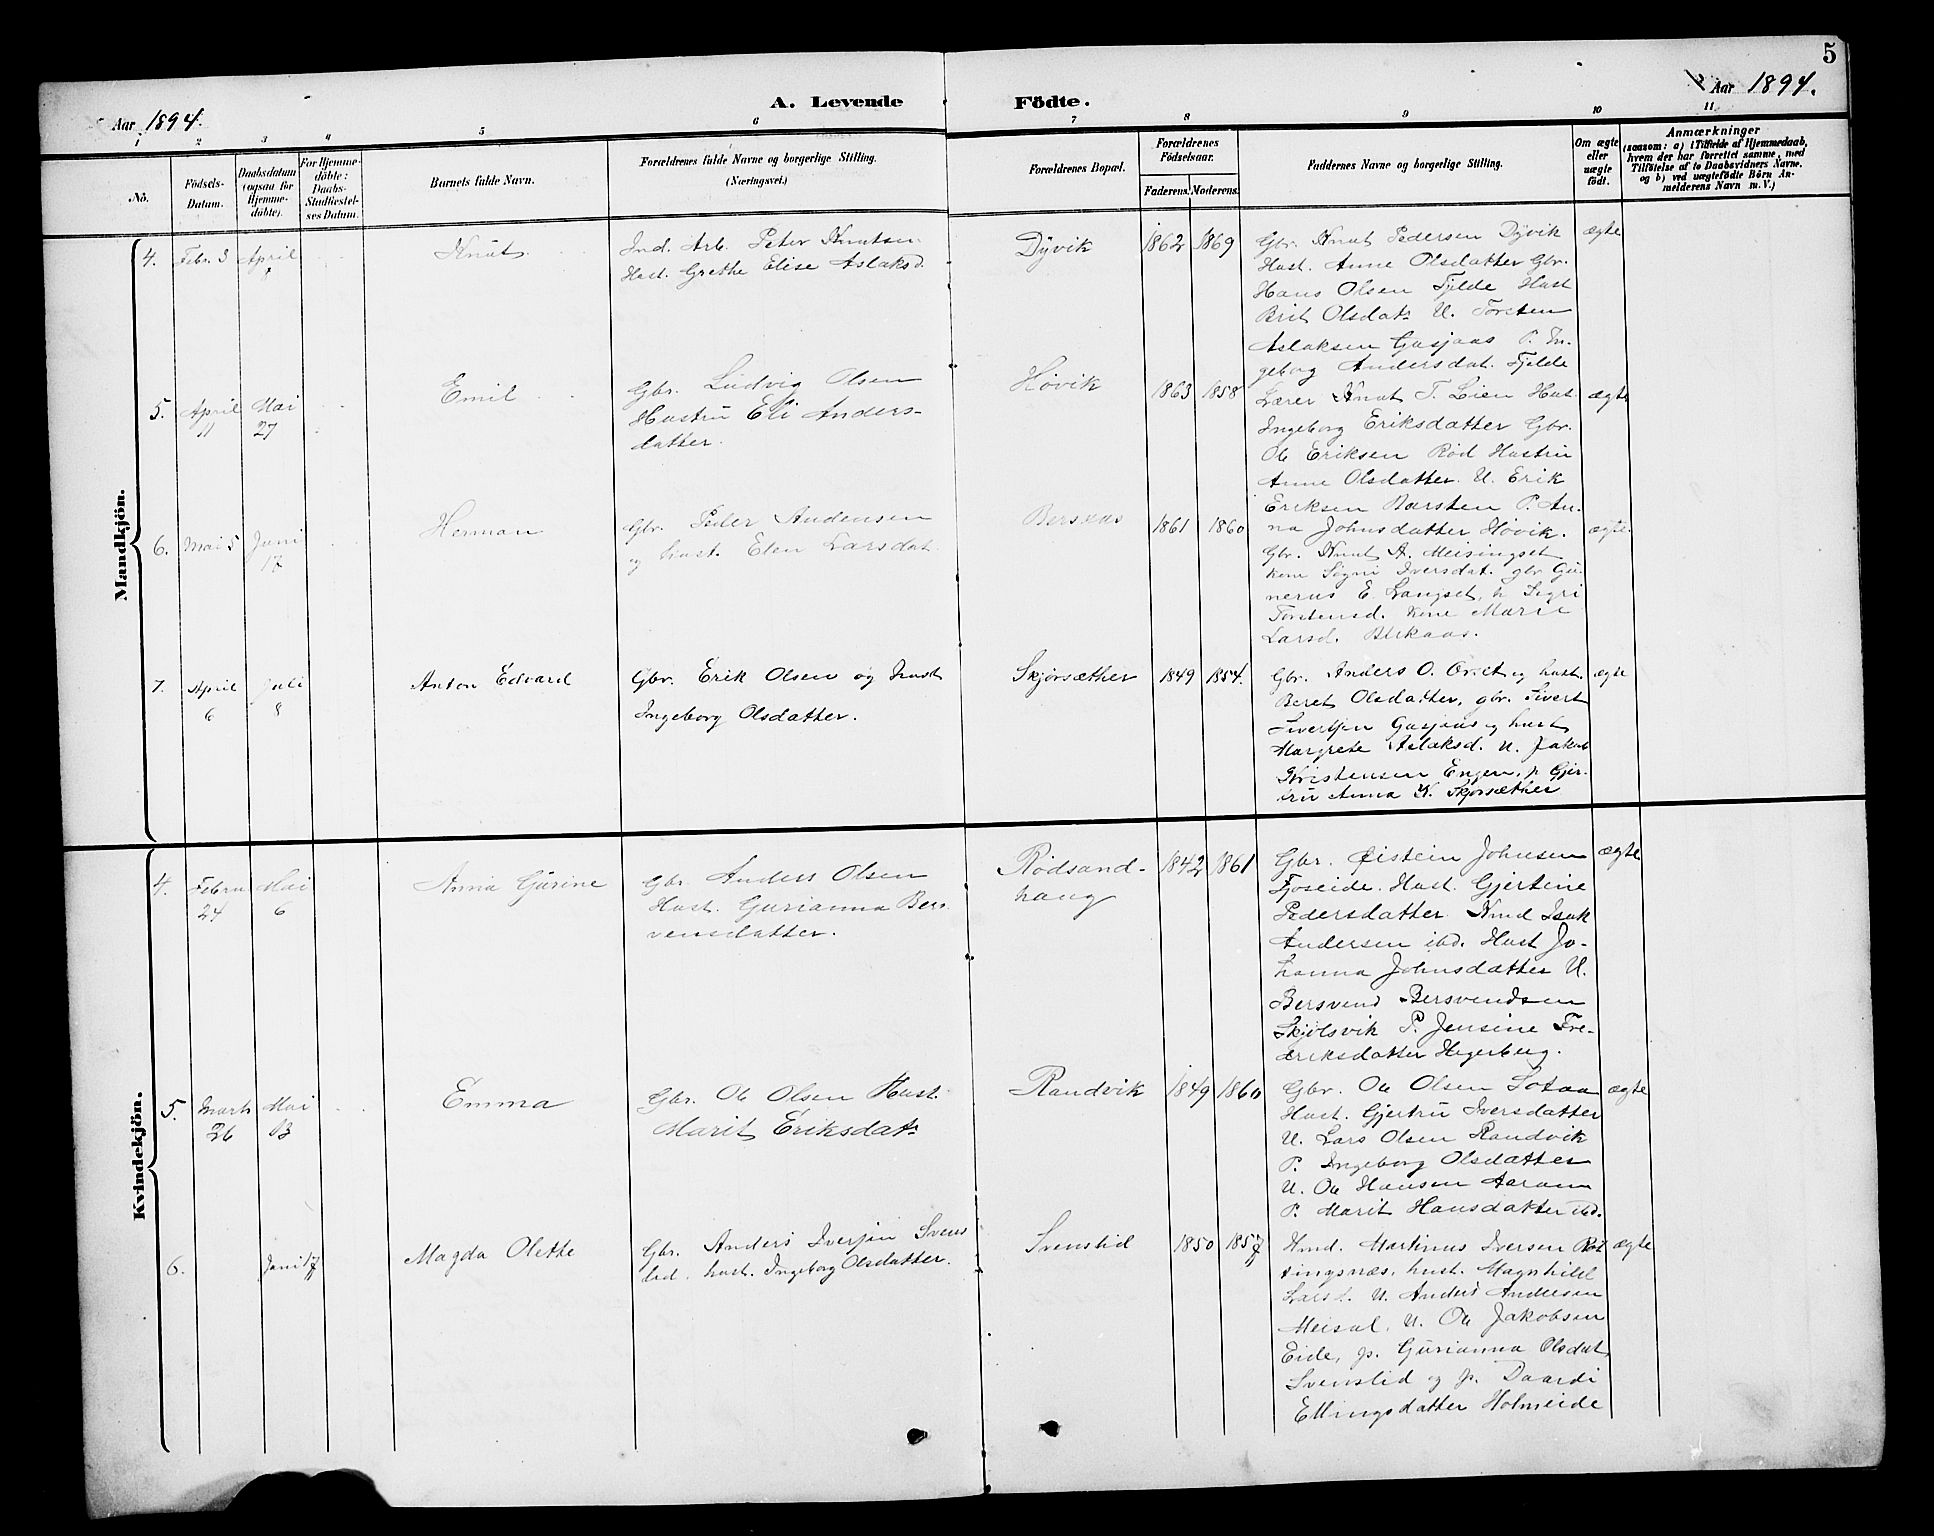 5
Aar 1894.
A. Levende Födte.
Aar 1894.
1 2 3 4 5 6 7 8 9 10 11
No.
Födsels-Datum.
Daabsdatum (ogsaa for Hjemme-döbte).
For Hjemme-döbte: Daabs-Stadfæstel-ses Datum.
Barnets fulde Navn.
Forældrenes fulde Navne og borgerlige Stilling. (Næringsvei.)
Forældrenes Bopæl.
Forældrenes Födselsaar.
Faderens. Moderens.
Faddernes Navne og borgerlige Stilling.
Om ægte eller uægte födt.
Anmærkninger
(saasom: a) i Tilfælde af Hjemmedaab,
hvem der har forrettet samme, med
Tilföielse af to Daabsvidners Navne.
og b) ved uægtefödte Börn An-
melderens Navn m. V.)
Mandkjön.
4. Febr. 3 April
Knut
Ind. Arb. Peter Knutsen
Hust. Grethe Elise Aslaksd.
Dÿvik 1862 1869
Gbr. Knut Pedersen Dÿvik
Hust. Anne Olsdatter Gbr.
Hans Olsen Fjelde Hust
Brit Olsdat. U. Torsten
Aslaksen Gasjaas P. In-
geborg Andersdat. Fjelde
ægte
5. April 11 Mai 27
Emil
Gbr. Ludvig Olsen
Hustru Eli Anders-
datter.
Høvik 1863 1858
Lærer Knut T. Løien Hust
Ingeborg Eriksdatter Gbr.
Ole Eriksen Rød Hustru
Anne Olsdatter. U. Erik
Eriksen Barsten P. An-
na Johnsdatter Høvik.
ægte
6. Mai 5 Juni 17
Herman
Gbr. Peder Andersen
og hust. Elen Larsdat.
Bersaas 1861 1860
Gbr. Knut A. Meisingset
kone Signi Iversdat. gbr. Gu-
nerus E. Langset, h. Sigri
Torstensd. kone Marie
Larsd. Birkaas.
ægte.
7. April 6 Juli 8
Anton Edvard
Gbr. Erik Olsen og Hust
Ingeborg Olsdatter.
Skjørsæther 1849 1854.
Gbr. Anders O. og hust.
Beret Olsdatter, gbr. Sivert
Sivertsen Gasjaas og hust
Margrete Aslaksd. U. Jakob
Kristensen Engen, p. Gjer-
tru Anna K. Skjørsæther
ægte
Kvindekjön.
4. Febru 24 Mai 6
Anna Gurine
Gbr. Anders Olsen
Hust. Gurianna Bers-
vensdatter.
Rødsand-
haug
1842 1861
Gbr. Øistein Johnsen
Fjoseide. Hust. Gjertine
Pedersdatter. Kmd Isak
Andersen ibd. Hust Jo-
hanna Johnsdatter U.
Bersvend Bersvendsen
Skjølsvik P. Jensine Fre-
deriksdatter Hegerberg.
ægte
5. Marts 26 Mai 13
Emma
Gbr. Ole Olsen Hust.
Marit Eriksdat.
Randvik 1849 1860
Gbr. Ole Olsen Sotaa
Hust. Gjertru Iversdatter
U. Lars Olsen Randvik
P. Ingeborg Olsdatter
U. Ole Hansen Aaram
P. Marit Hansdatter ibd.
ægte
6. Juni 17
Magda Olette
Gbr. Anders Iversen Svens
lid. hust. Ingeborg Olsdatter.
Svenslid 1850 1857
Hmd. Martinus Iversen Rot
tingsnæs, hust. Magnhild
Larsd. U. Anders Andersen
Meisal, U. Ole Jakobsen
Eide, p. Gurianna Olsdat.
Svenslid og p. Daardi
Ellingsdatter Holmeide
ægte